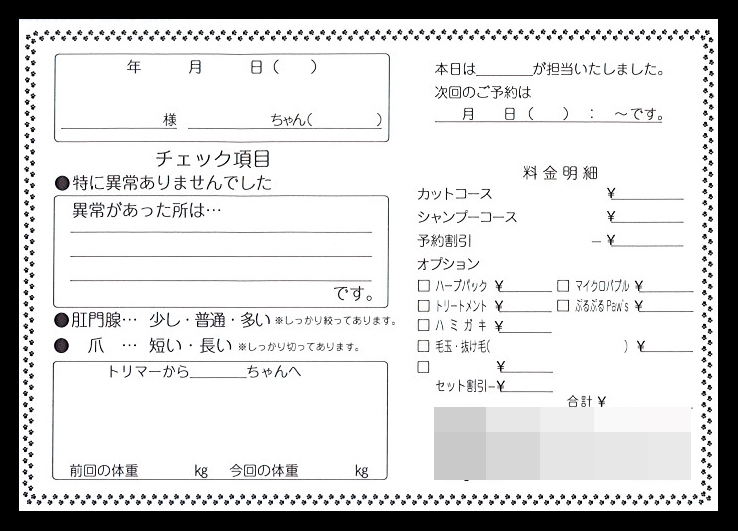 年 月 日( )
様 ちゃん( )
チェック項目
●特に異常ありませんでした
異常があった所は…
です。
●肛門腺… 少し・普通・多い ※しっかり絞ってあります。
● 爪 … 短い・長い ※しっかり切ってあります。
トリマーから________ちゃんへ
前回の体重 kg 今回の体重 kg
本日は________が担当いたしました。
次回のご予約は
月 日( ) : ～です。
料金明細
カットコース ¥
シャンプーコース ¥
予約割引 −¥
オプション
□ ハーブパック ¥ □ マイクロバブル ¥
□ トリートメント ¥ □ ぷるぷるPaw's ¥
□ ハミガキ ¥
□ 毛玉・抜け毛( ) ¥
□ ¥
セット割引−¥
合計 ¥